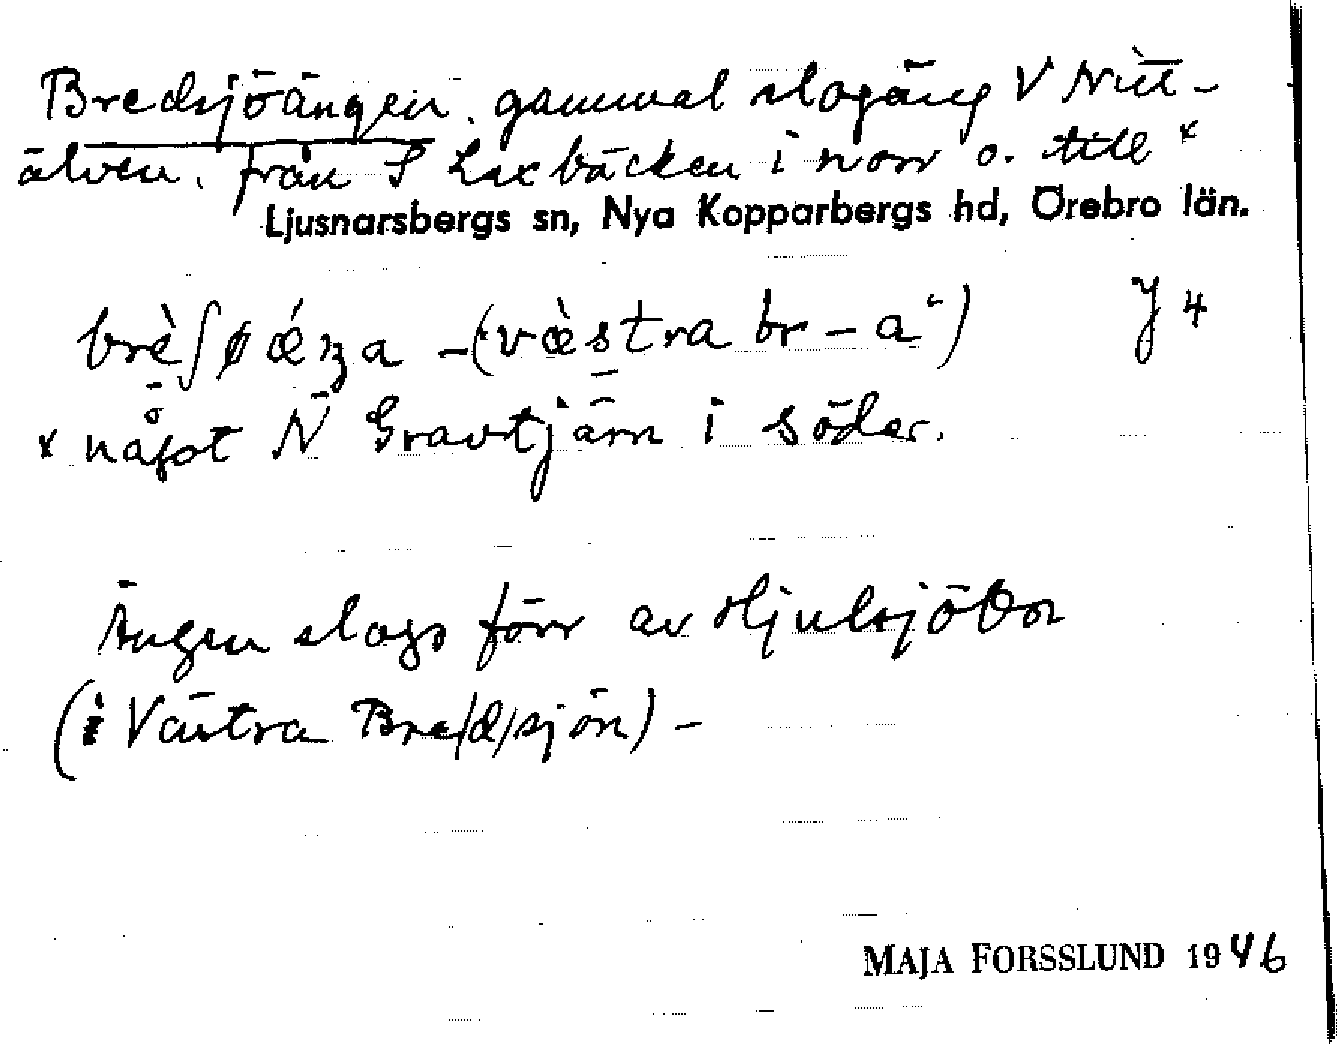 Bredsjöängen. gammal slogäng V Nitt-
älven. från S Laxbäcken i norr o. till x
Ljusnarsbergs sn, Nya Kopparbergs hd, Örebro län.
brèʃøǽŋa -(væ̀stra br-a") J 4
x något N Gravtjärn i söder.
Ängen slogs förr av Hjulsjöbor
(i Västra Bre/d/sjön) -
MAJA FORSSLUND 1946